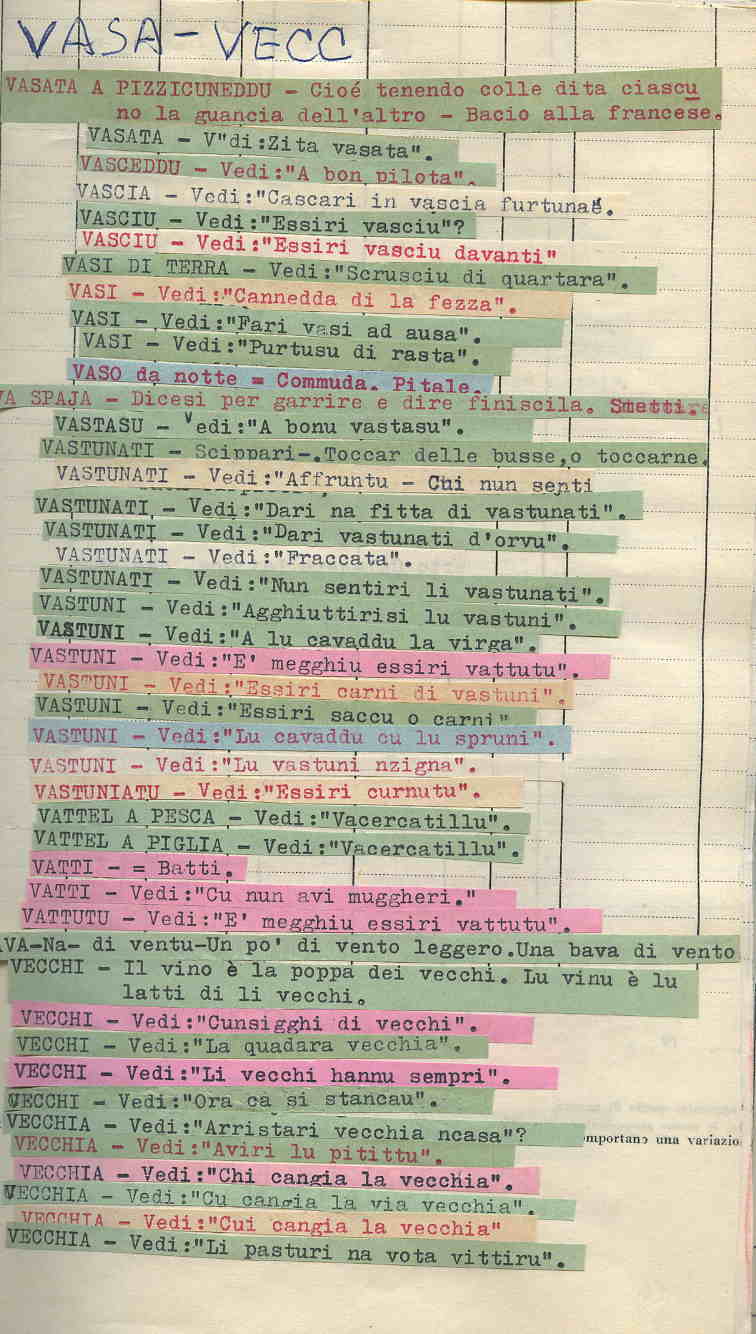 VASA-VECC
VASATA A PIZZICUNEDDU - Cioé tenendo colle dita ciascu
no la guancia dell'altro - Bacio alla francese.
VASATA - V"di:Zita vasata".
VASCEDDU - Vedi:"A bon pilota".
VASCIA - Vedi:"Cascari in vascia furtuna
VASCIU - Vedi:"Essiri vasciu"?
VASCIU - Vedi:"Essiri vasciu davanti"
VASI DI TERRA - Vedi:"Scrusciu di quartara".
VASI - Vedi:"Cannedda di la fezza".
VASI - Vedi:"Fari vasi ad ausa".
VASI - Vedi:"Purtusu di rasta".
VASO da notte = Commuda. Pitale.
VA SPAJA - Dicesi per garrire e dire finiscila. Smettire
VASTASU - Vedi:"A bonu vastasu".
VASTUNATI - Scippari-.Toccar delle busse,o toccarne.
VASTUNATI - Vedi:"Affruntu - Chi nun senti
VASTUNATI - Vedi:"Dari na fitta di vastunati".
VASTUNATI - Vedi:"Dari vastunati d'orvu".
VASTUNATI - Vedi:"Fraccata".
VASTUNATI - Vedi:"Nun sentiri li vastunati".
VASTUNI - Vedi:"Agghiuttirisi lu vastuni".
VASTUNI - Vedi:"A lu cavaddu la virga".
VASTUNI - Vedi:"E' megghiu essiri vattutu".
VASTUNI - Vedi:"Essiri carni di vastuni".
VASTUNI - Vedi:"Essiri saccu o carni"
VASTUNI - Vedi:"Lu cavaddu cu lu spruni".
VASTUNI - Vedi:"Lu vastuni nzigna".
VASTUNIATU - Vedi:"Essiri curnutu".
VATTEL A PESCA - Vedi:"Vacercatillu".
VATTEL A PIGLIA - Vedi:"Vacercatillu".
VATTI - = Batti.
VATTI - Vedi:"Cu nun avi muggheri."
VATTUTU - Vedi:"E' megghiu essiri vattutu".
VA-Na- di ventu-Un po' di vento leggero.Una bava di vento
VECCHI - Il vino è la poppa dei vecchi. Lu vinu è lu
latti di li vecchi.
VECCHI - Vedi:"Cunsigghi di vecchi".
VECCHI - Vedi:"La quadara vecchia".
VECCHI - Vedi:"Li vecchi hannu sempri".
VECCHI - Vedi:"Ora ca si stancau".
VECCHIA - Vedi:"Arristari vecchia ncasa"?
mportano una variazio
VECCHIA - Vedi:"Aviri lu pitittu".
VECCHIA - Vedi:"Chi cangia la vecchia".
VECCHIA - Vedi:"Cu cangia la via vecchia".
VECCHIA - Vedi:"Cui cangia la vecchia"
VECCHIA - Vedi:"Li pasturi na vota vittiru".